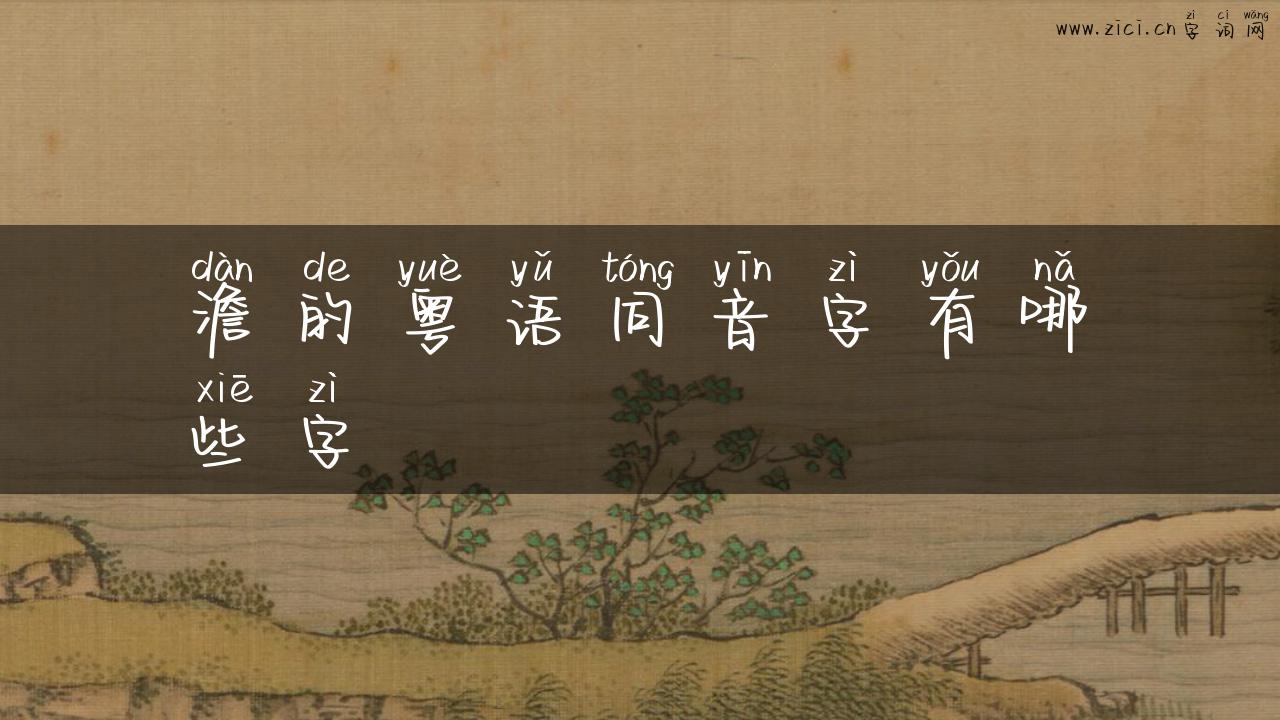 zì cí wǎng
www.zici.cn 字词网
dàn de yuè yǔ tóng yīn zì yǒu nǎ
澹的粤语同音字有哪
xiē zì
些字